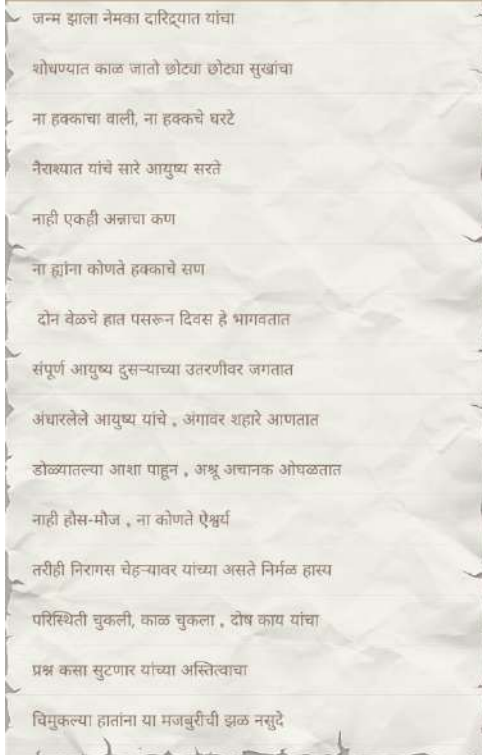 जन्म झाला नेमका दारिद्र्यात यांचा
शोधण्यात काळ जातो छोट्या छोट्या सुखांचा
ना हक्काचा वाली, ना हक्कचे घरटे
नैराश्यात यांचे सारे आयुष्य सरते
नाही एकही अन्नाचा कण
ना ह्यांना कोणते हक्काचे सण
दोन वेळचे हात पसरून दिवस हे भागवतात
संपूर्ण आयुष्य दुसऱ्याच्या उतरणीवर जगतात
अंधारलेले आयुष्य यांचे , अंगावर शहारे आणतात
डोळ्यातल्या आशा पाहून , अश्रू अचानक ओघळतात
नाही हौस-मौज , ना कोणते ऐश्वर्य
तरीही निरागस चेहऱ्यावर यांच्या असते निर्मळ हास्य
परिस्थिती चुकली, काळ चुकला , दोष काय यांचा
प्रश्न कसा सुटणार यांच्या अस्तित्वाचा
चिमुकल्या हातांना या मजबुरीची झळ नसुदे